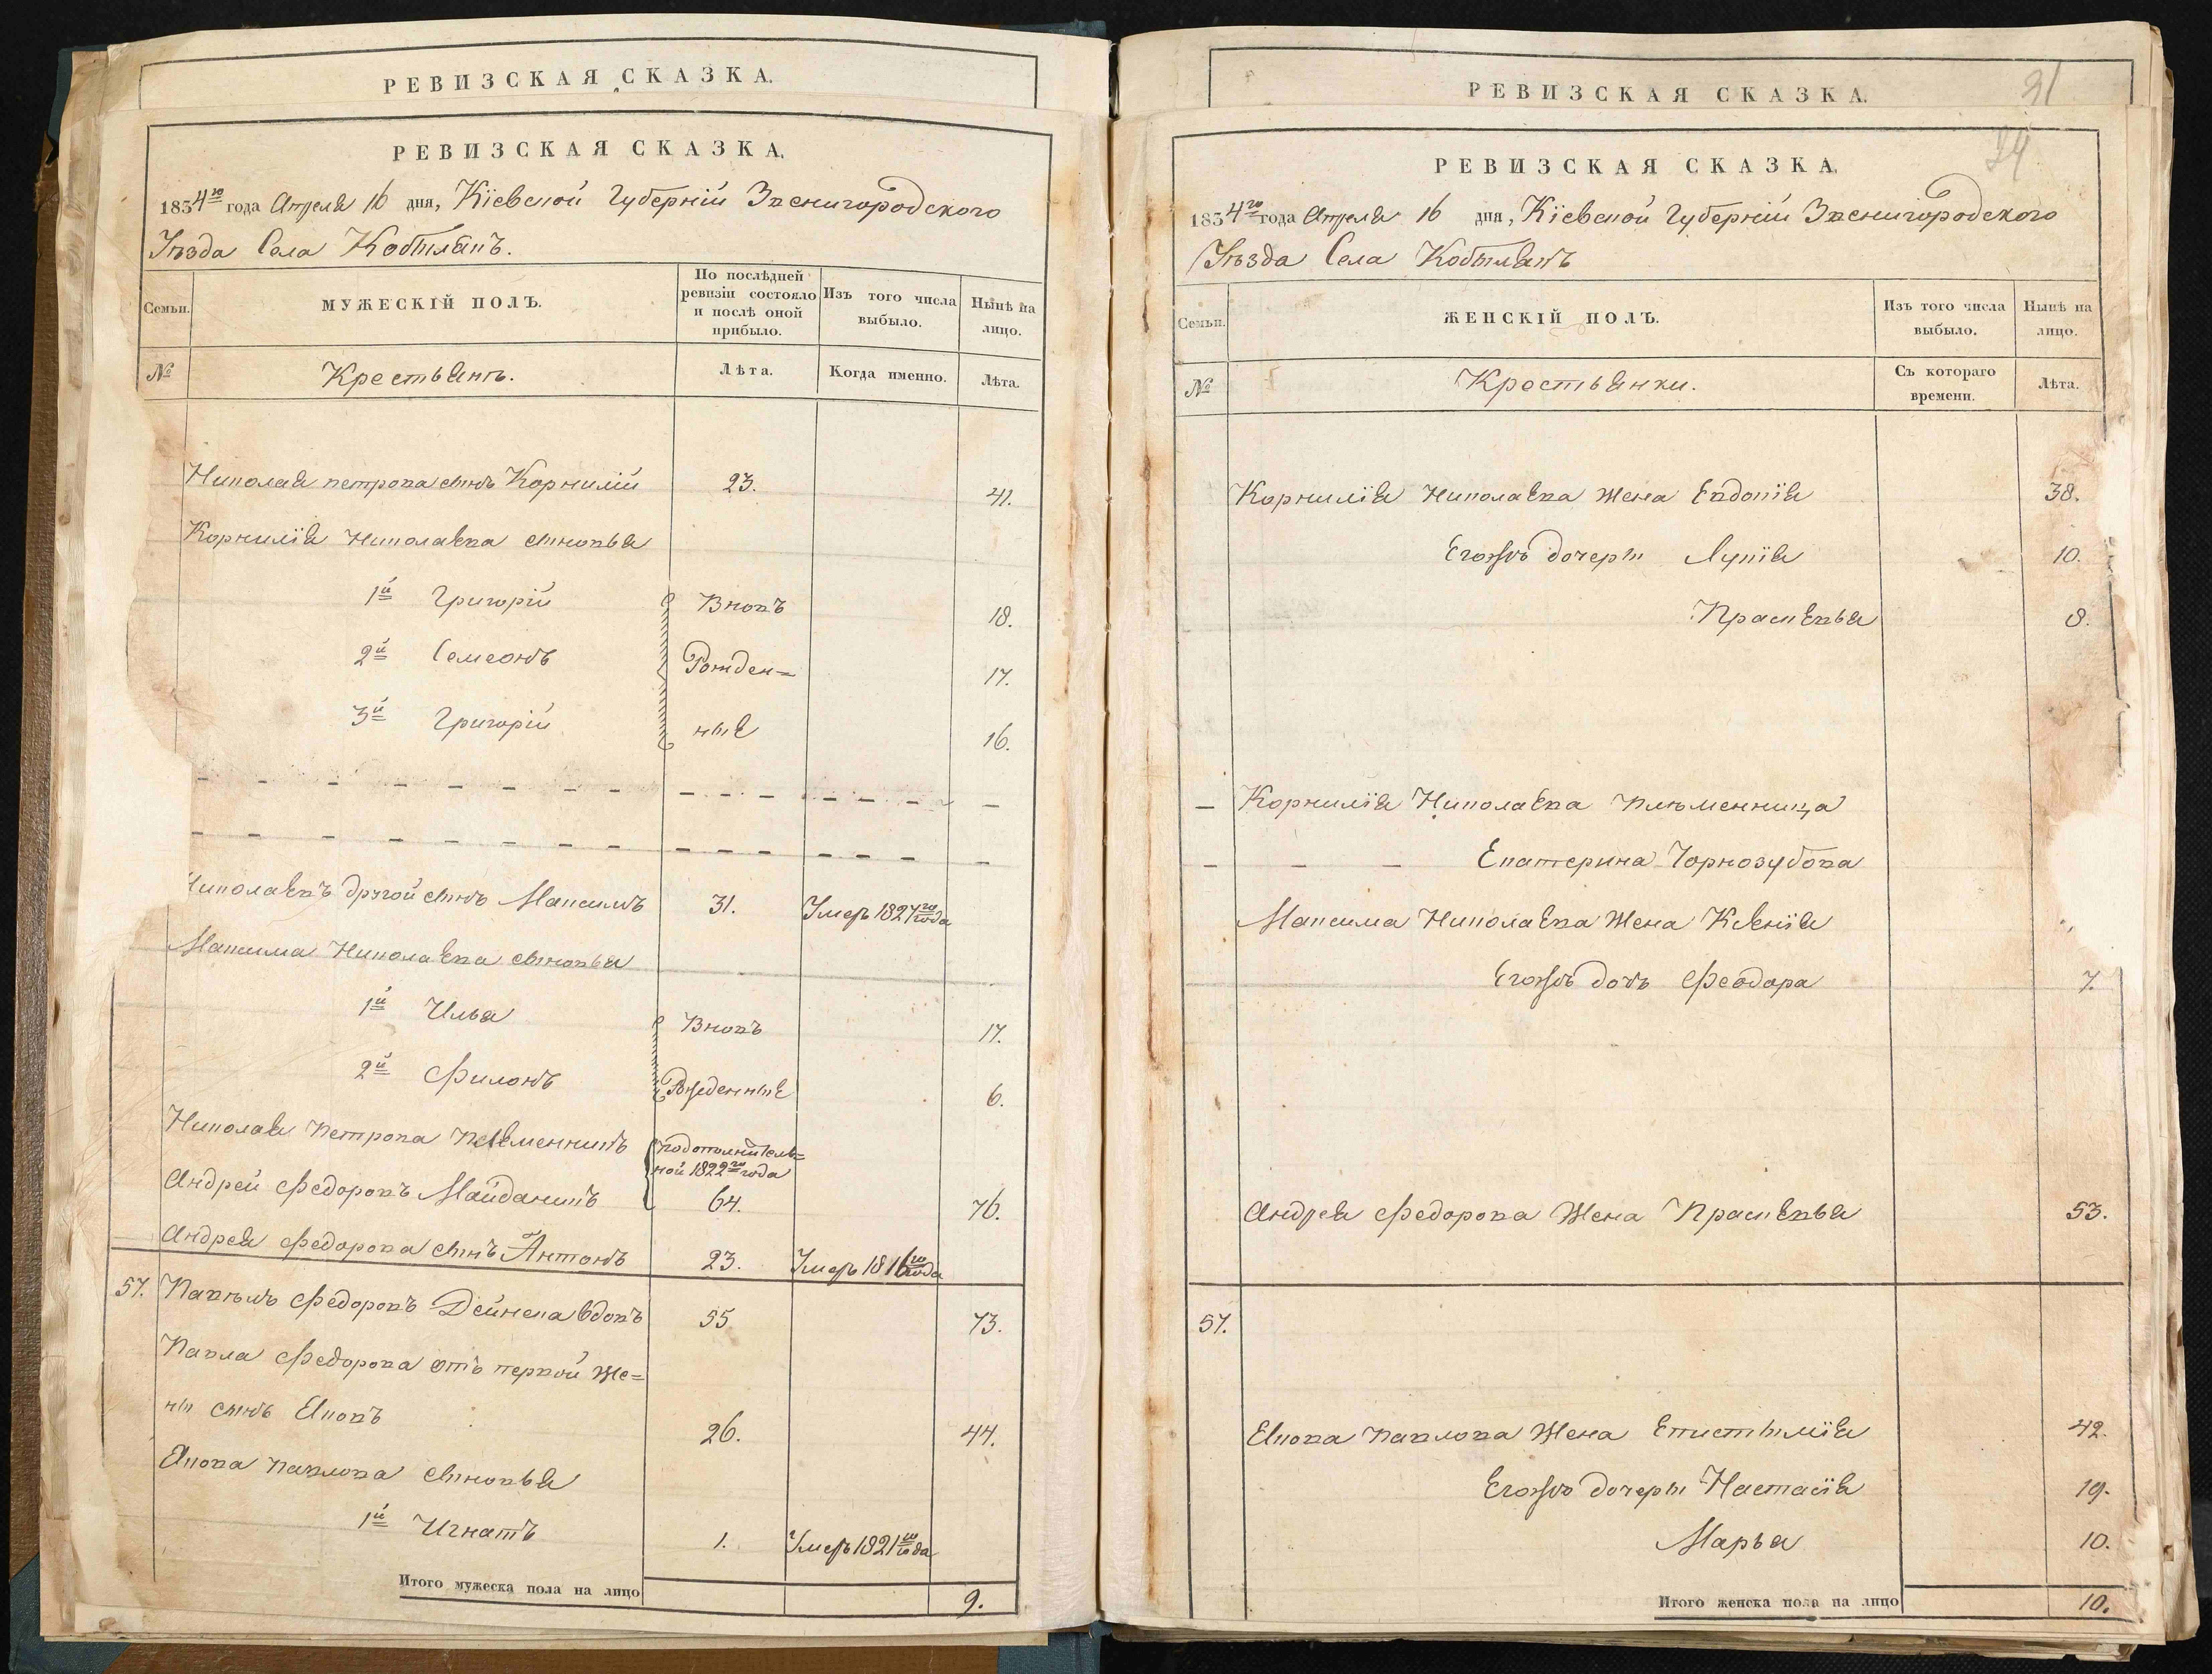 РЕВИЗСКАЯ СКАЗКА.
РЕВИЗСКАЯ СКАЗКА.
1834го года Апреля 16 дня, Кіевской Губерніи Звенигородского
Уѣзда Села Кобылякъ.
Семьи.
МУЖЕСКІЙ ПОЛЪ.
По послѣдней ревизіи состояло и послѣ оной прибыло.
Изъ того числа выбыло.
Нынѣ на лицо.
№
Крестьянъ.
Лѣта.
Когда именно.
Лѣта.
Николая петрова сынъ Корнилій 23. 41.
Корнилія Николаева сыновья
1й Григорій Вновь 18.
2й Семеонъ Рожден= 17.
3й Григорій ные 16.
Николаевъ другой сынъ Максимъ 31. Умеръ 1827го года
Максима Николаева сыновья
1й Илья Вновь 17.
2й Филонъ Рожденные 6.
Николая Петрова племенникъ подополнитель=
ной 1822го года
Андрей Федоровъ Майданикъ 64. 76.
Андрея Федорова сынъ Антонъ 23. Умеръ 1816го года
57. Павелъ Федоровъ Дейнека вдовъ 55 73.
Павла Федорова отъ первой же=
ны сынъ Яковъ 26. 44.
Якова павлова сыновья
1й Игнатъ 1. Умеръ 1821го года
Итого мужеска пола на лицо 9.
РЕВИЗСКАЯ СКАЗКА.
31
РЕВИЗСКАЯ СКАЗКА.
1834го года Апреля 16 дня, Кіевской Губерніи Звенигородского
Уѣзда Села Кобылякъ
Семьи.
ЖЕНСКІЙ ПОЛЪ.
Изъ того числа выбыло.
Нынѣ на лицо.
№
Крестьянки.
Съ котораго времени.
Лѣта.
Корнилія Николаева жена Евдокія 38.
Егожъ дочеры Лукія 10.
Прасковья 8.
Корнилія Николаева племенница
Екатерина Чорнозубова
Максима Николаева жена Ксенія
Егожъ дочь Феодора 7.
Андрея Федорова жена Прасковья 53.
57.
Якова павлова жена Епистымія 42.
Егожъ дочеры Настасія 19.
Марья 10.
Итого женска пола на лицо 10.